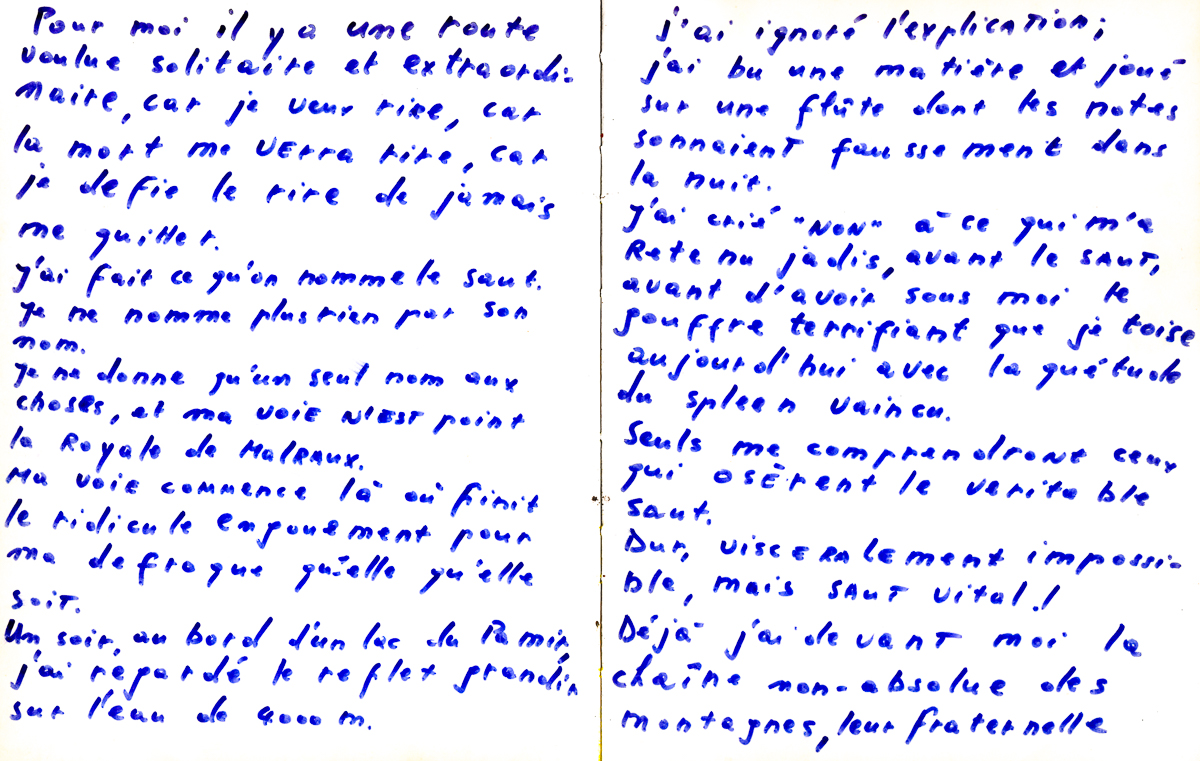 Pour moi il y a une route
voulue solitaire et extraordi-
naire, car je veux rire, car
la mort me verra rire, car
je défie le rire de jamais
me quitter.
J'ai fait ce qu'on nomme le saut.
Je ne nomme plus rien par son
nom.
Je ne donne qu'un seul nom aux
choses, et ma voie N'EST point
la Royale de MalRAUX.
Ma voie commence là où finit
le ridicule engouement pour
ma defroque qu'elle qu'elle
soit.
Un soir, au bord d'un lac du Pamir,
j'ai regardé le reflet grandir
sur l'eau de 4000 m.
j'ai ignoré l'explication;
j'ai bu une matière et joué
sur une flûte dont les notes
sonnaient faussement dans
la nuit.
J'ai crié "NON" à ce qui m'a
Retenu jadis, avant le SAUT,
avant d'avoir sous moi le
gouffre terrifiant que je toise
aujourd'hui avec la quétude
du spleen vaincu.
Seuls me comprendront ceux
qui osèrent le veritable
saut.
Dur, viscERAlement impossi-
ble, mais SAUT vital.!
Déjà j'ai devant moi la
chaîne non-absolue des
montagnes, leur fraternelle